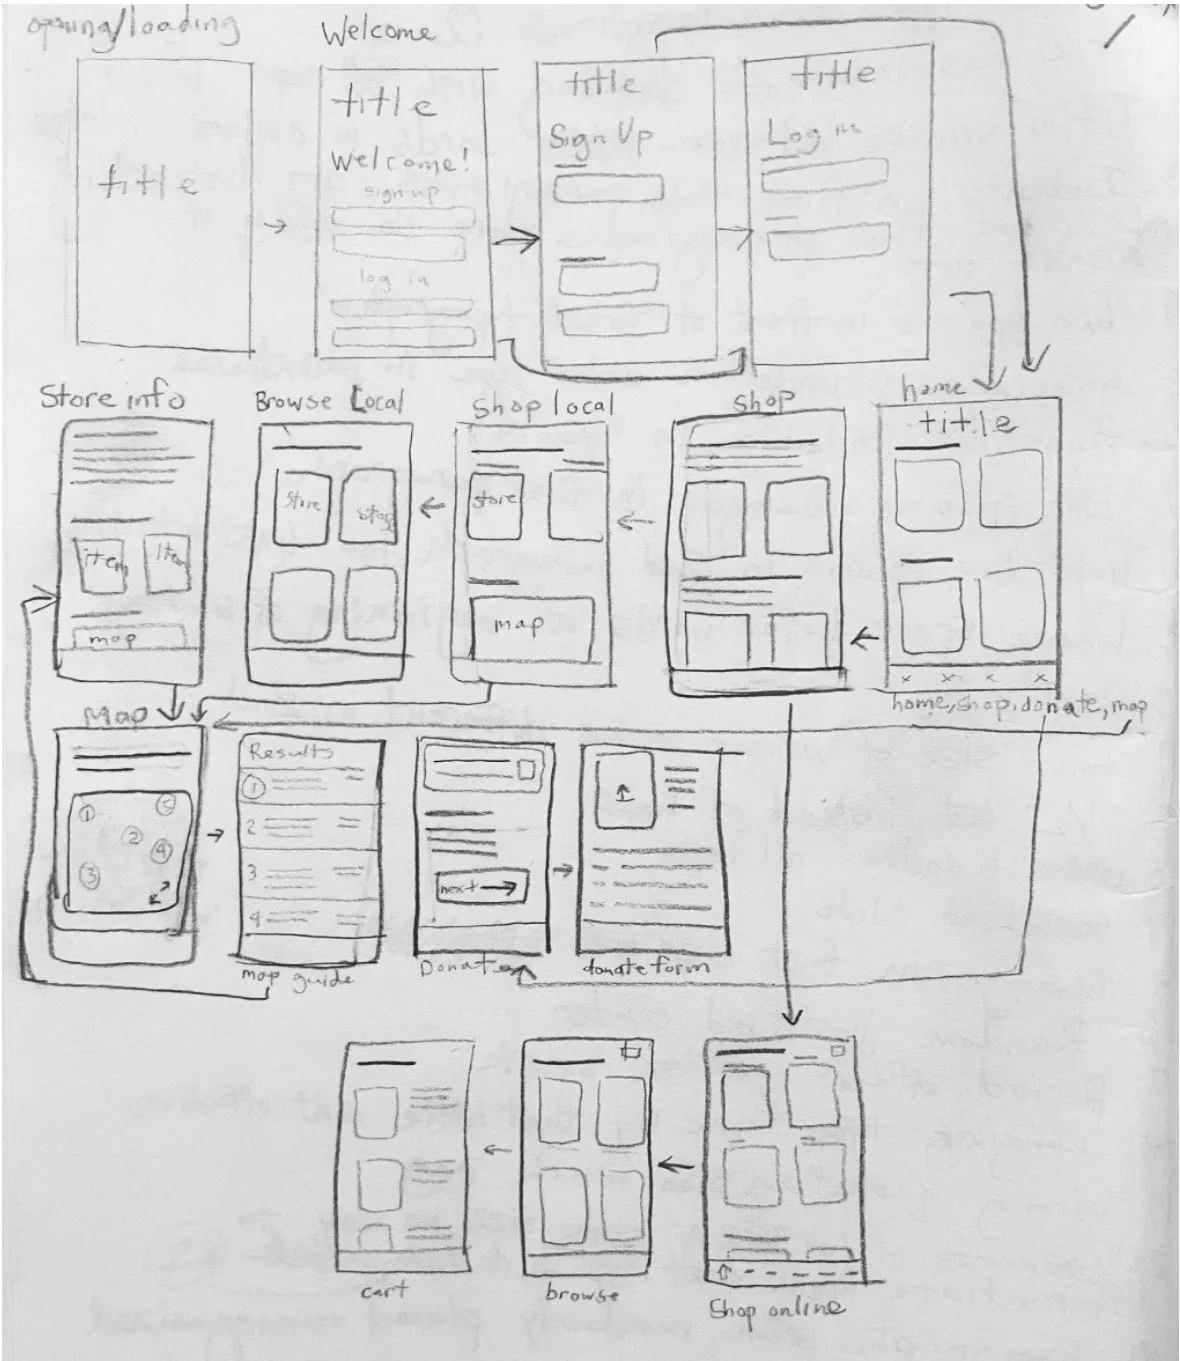 opening/loading
Welcome
title
title
Welcome!
sign up
log in
title
Sign Up
title
Log in
Store info
item
Item
map
Browse Local
store
store
Shop local
store
map
Shop
home
title
x x x x
home, shop, donate, map
Map
1
5
2
4
3
Results
1
2
3
4
map guide
next →
Donate
donate form
cart
browse
Shop online